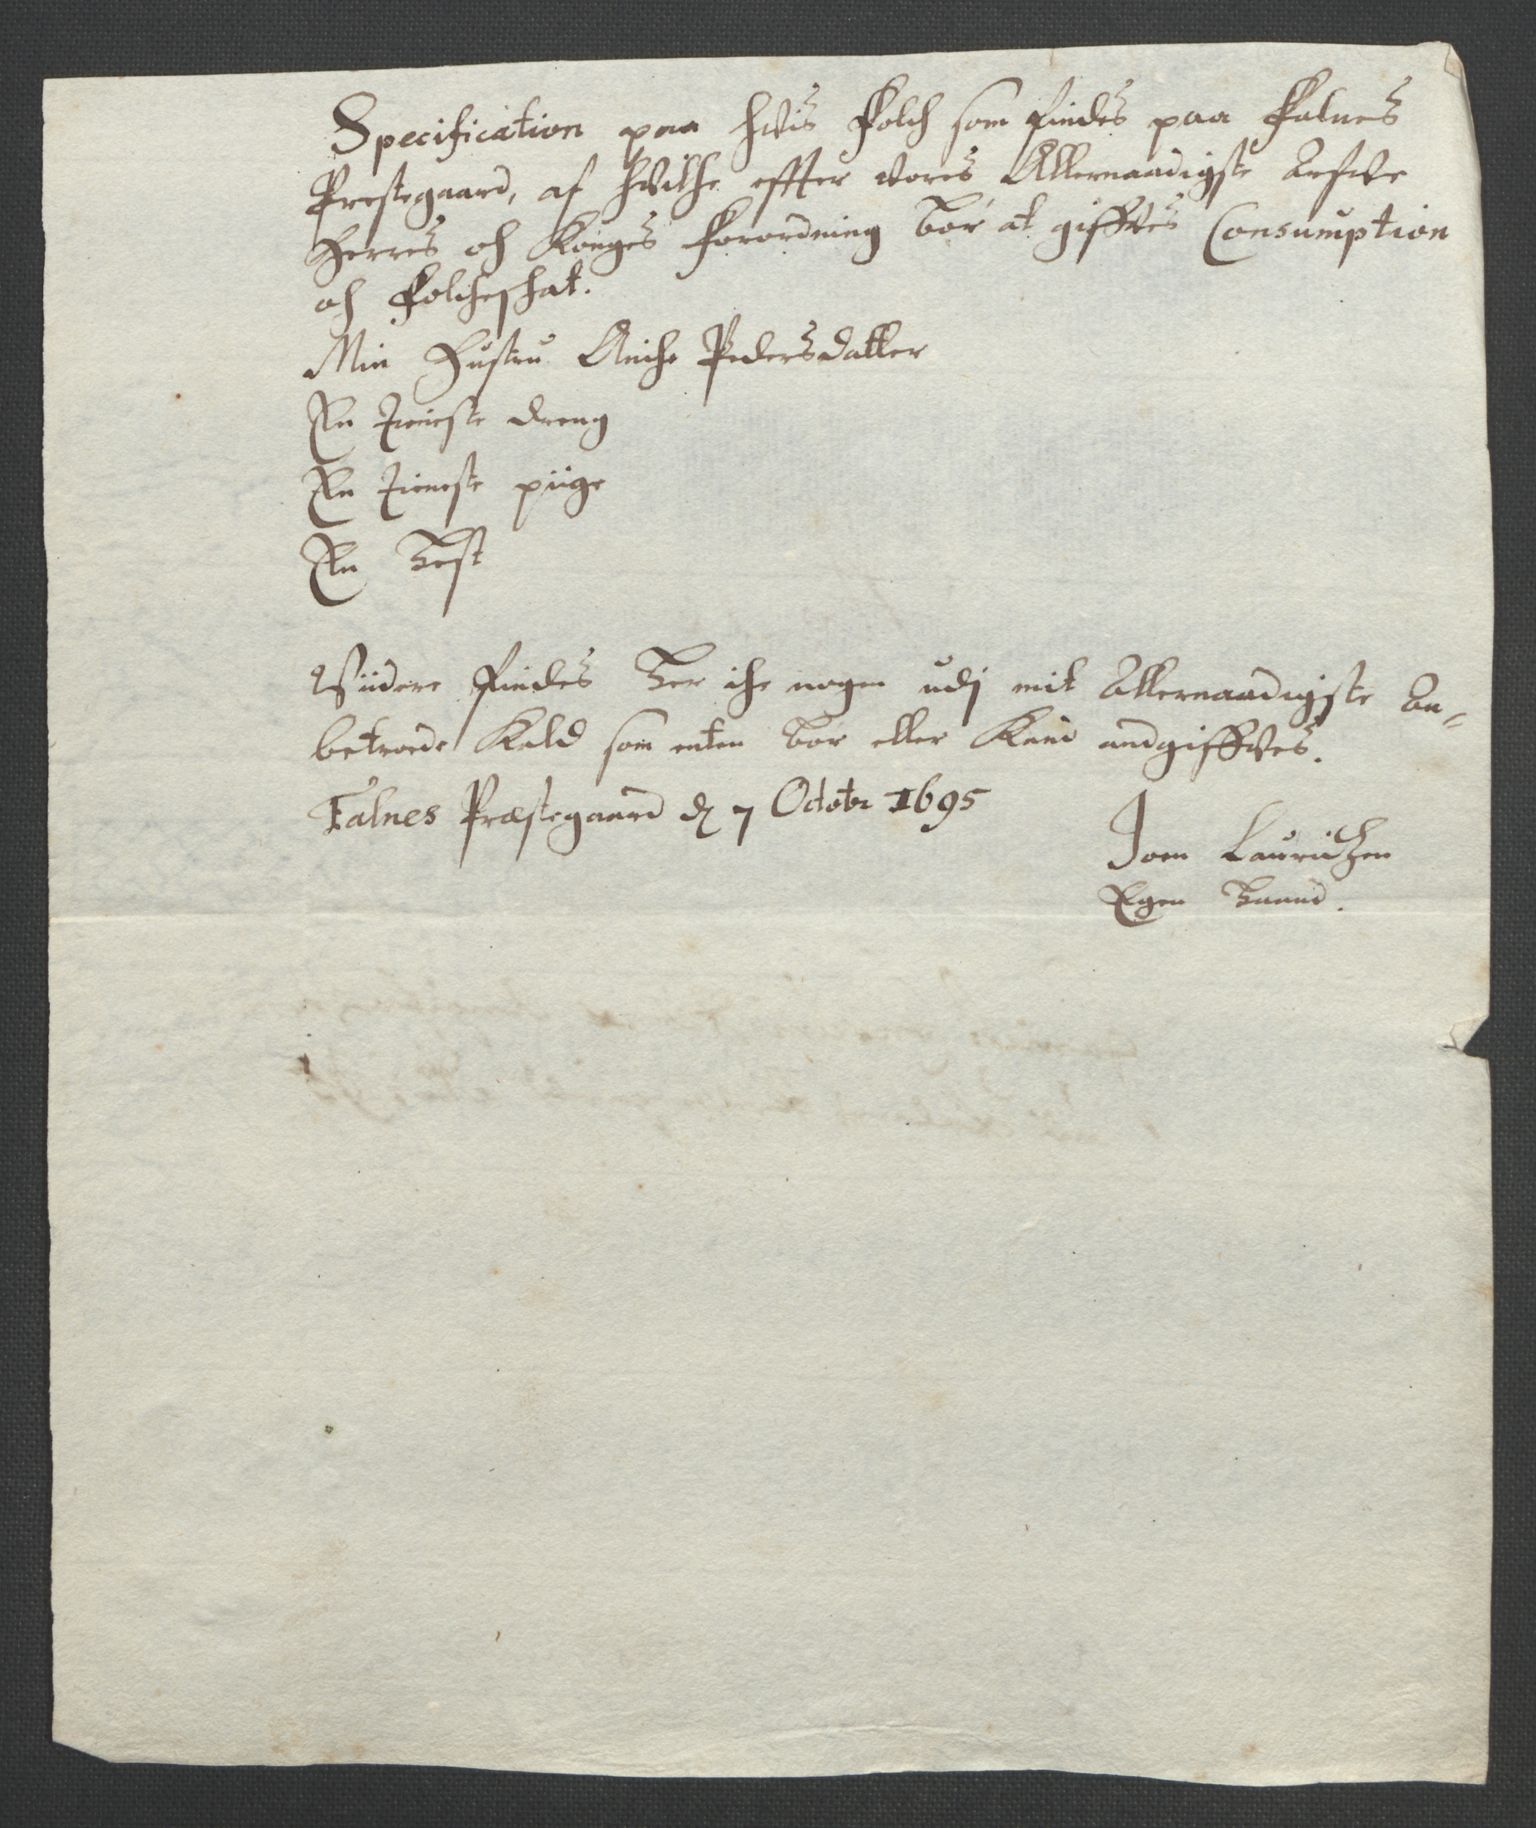 Specification paa hvis Folch som findes paa Falnes
Prestegaard, af hvilche effter vores Allernaadigste Arfve
Herres och Konges Forordning bør at giffves Consumption
och Folcheschat.
Min Hustru Anche Pedersdatter
En tieneste dreng
En tieneste piige
En Hest
Viidere findes her iche nogen udj mit Allernaadigste An-
betroede Kald som enten bør eller Kand andgiffves.
Falnes Præstegaard d 7 Octobr 1695
Joen Lauridtzen
Egen Haand.